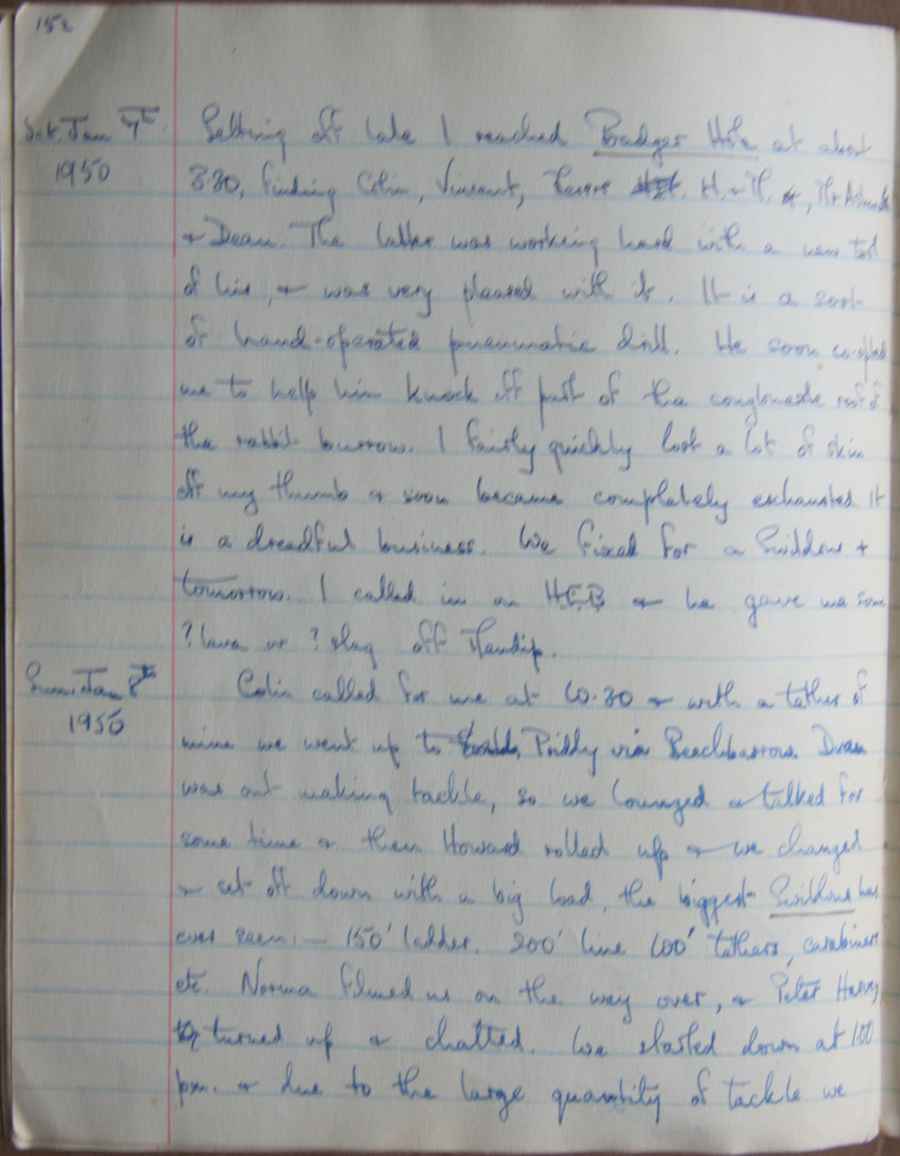 152
Sat. Jan 7th Setting off late I reached Badger Hole at about
1950 3.30, finding Colin, Vincent, H. & H.
& Dean. The latter was working hard with a new tool
of his, & was very pleased with it. It is a sort
of hand-operated pneumatic drill. He soon co-opted
me to help him knock off part of the conglomerate roof of
the rabbit burrow. I fairly quickly lost a lot of skin
off my thumb & soon became completely exhausted. It
is a dreadful business. We fixed for a Swildons +
tomorrow. I called in on HEB & he gave me some
? lava or ? slag off Mendip.
Sun. Jan 8th Colin called for me at 10.30 & with a tether of
1950 mine we went up to Priddy via Beechbarrow. Dean
was out making tackle, so we lounged & talked for
some time & then Howard rolled up & we changed
& set off down with a big load, the biggest Swildons has
ever seen: — 150' ladder. 200' line 100' tethers, carabiners
etc. Norma filmed us on the way over, & Peter Harvey
turned up & chatted. We started down at 1.00
pm. & due to the large quantity of tackle we